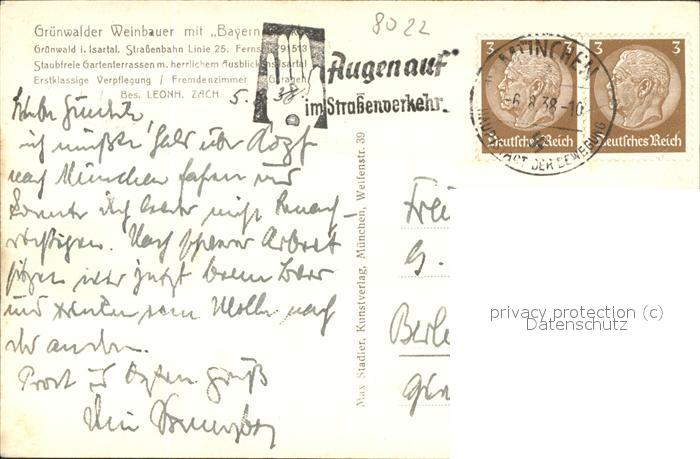 Grünwalder Weinbauer mit „Bayern
Grünwald i. Isartal. Straßenbahn Linie 25. Fernspr. 91513
Staubfreie Gartenterrassen m. herrlichem Ausblick Isartal
Erstklassige Verpflegung / Fremdenzimmer / Garagen
Bes. LEONH. ZACH
8022
Augen auf
im Straßenverkehr
3 3
MÜNCHEN
-6.8.38-10
HAUPTSTADT DER BEWEGUNG
Deutsches Reich Deutsches Reich
5. 38.
Liebe
ich mußte über
nach München fahren und
konnte Dich leider nicht benach-
richtigen. Nach schwerer Arbeit
sitzen wir jetzt beim Bier
und trinken eine Molle nach
der anderen.
Prost und Gruß
Dein
Max Stadler, Kunstverlag, München, Welfenstr. 39
G.
privacy protection (c)
Datenschutz